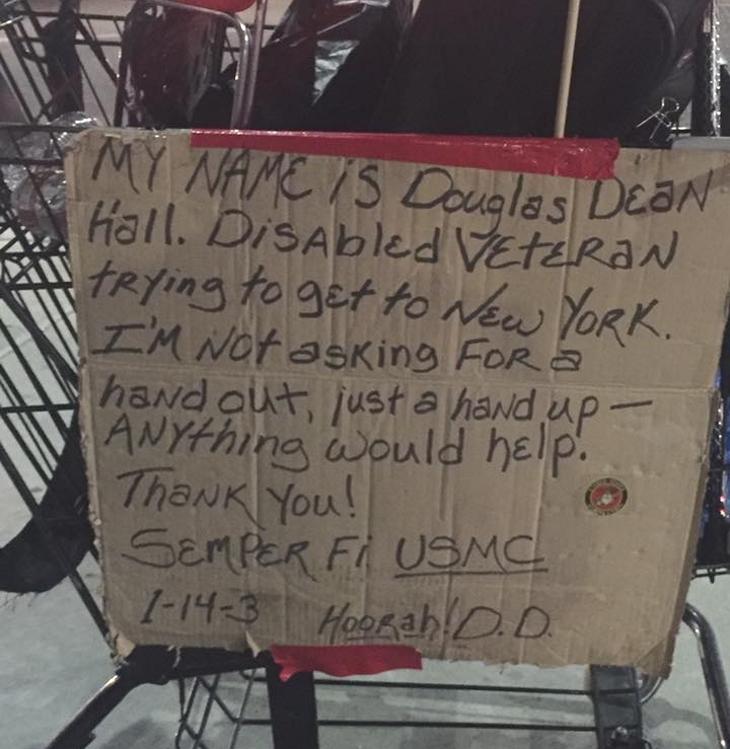 MY NAME is Douglas Dean
Hall. Disabled Veteran
trying to get to New York.
I'm Not asking For a
hand out, just a hand up —
Anything would help.
Thank You!
Semper Fi USMC
1-14-3 Hoorah! D.D.